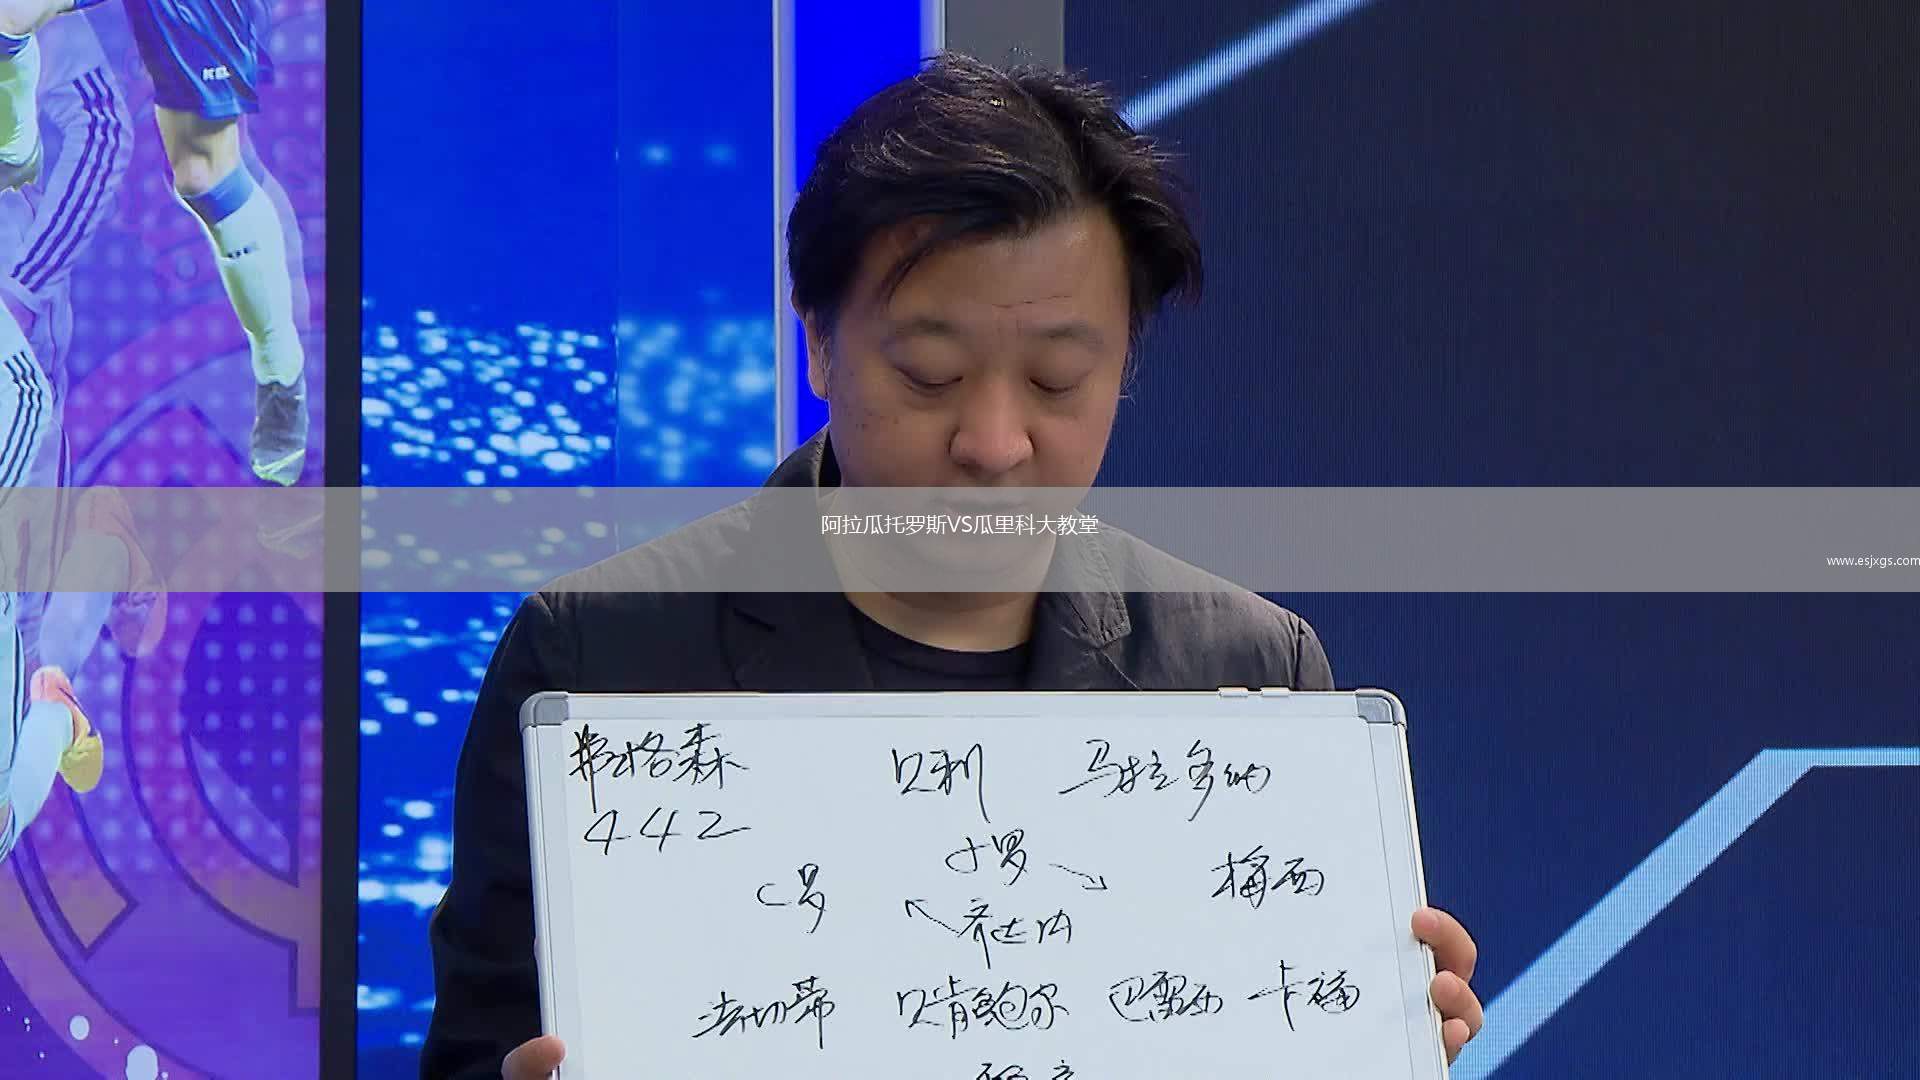 阿拉瓜托罗斯VS瓜里科大教堂
www.esjxgs.com
弗格森 贝利 马拉多纳
442
C罗 小罗 梅西
齐达内
法切蒂 贝肯鲍尔 巴雷西 卡福